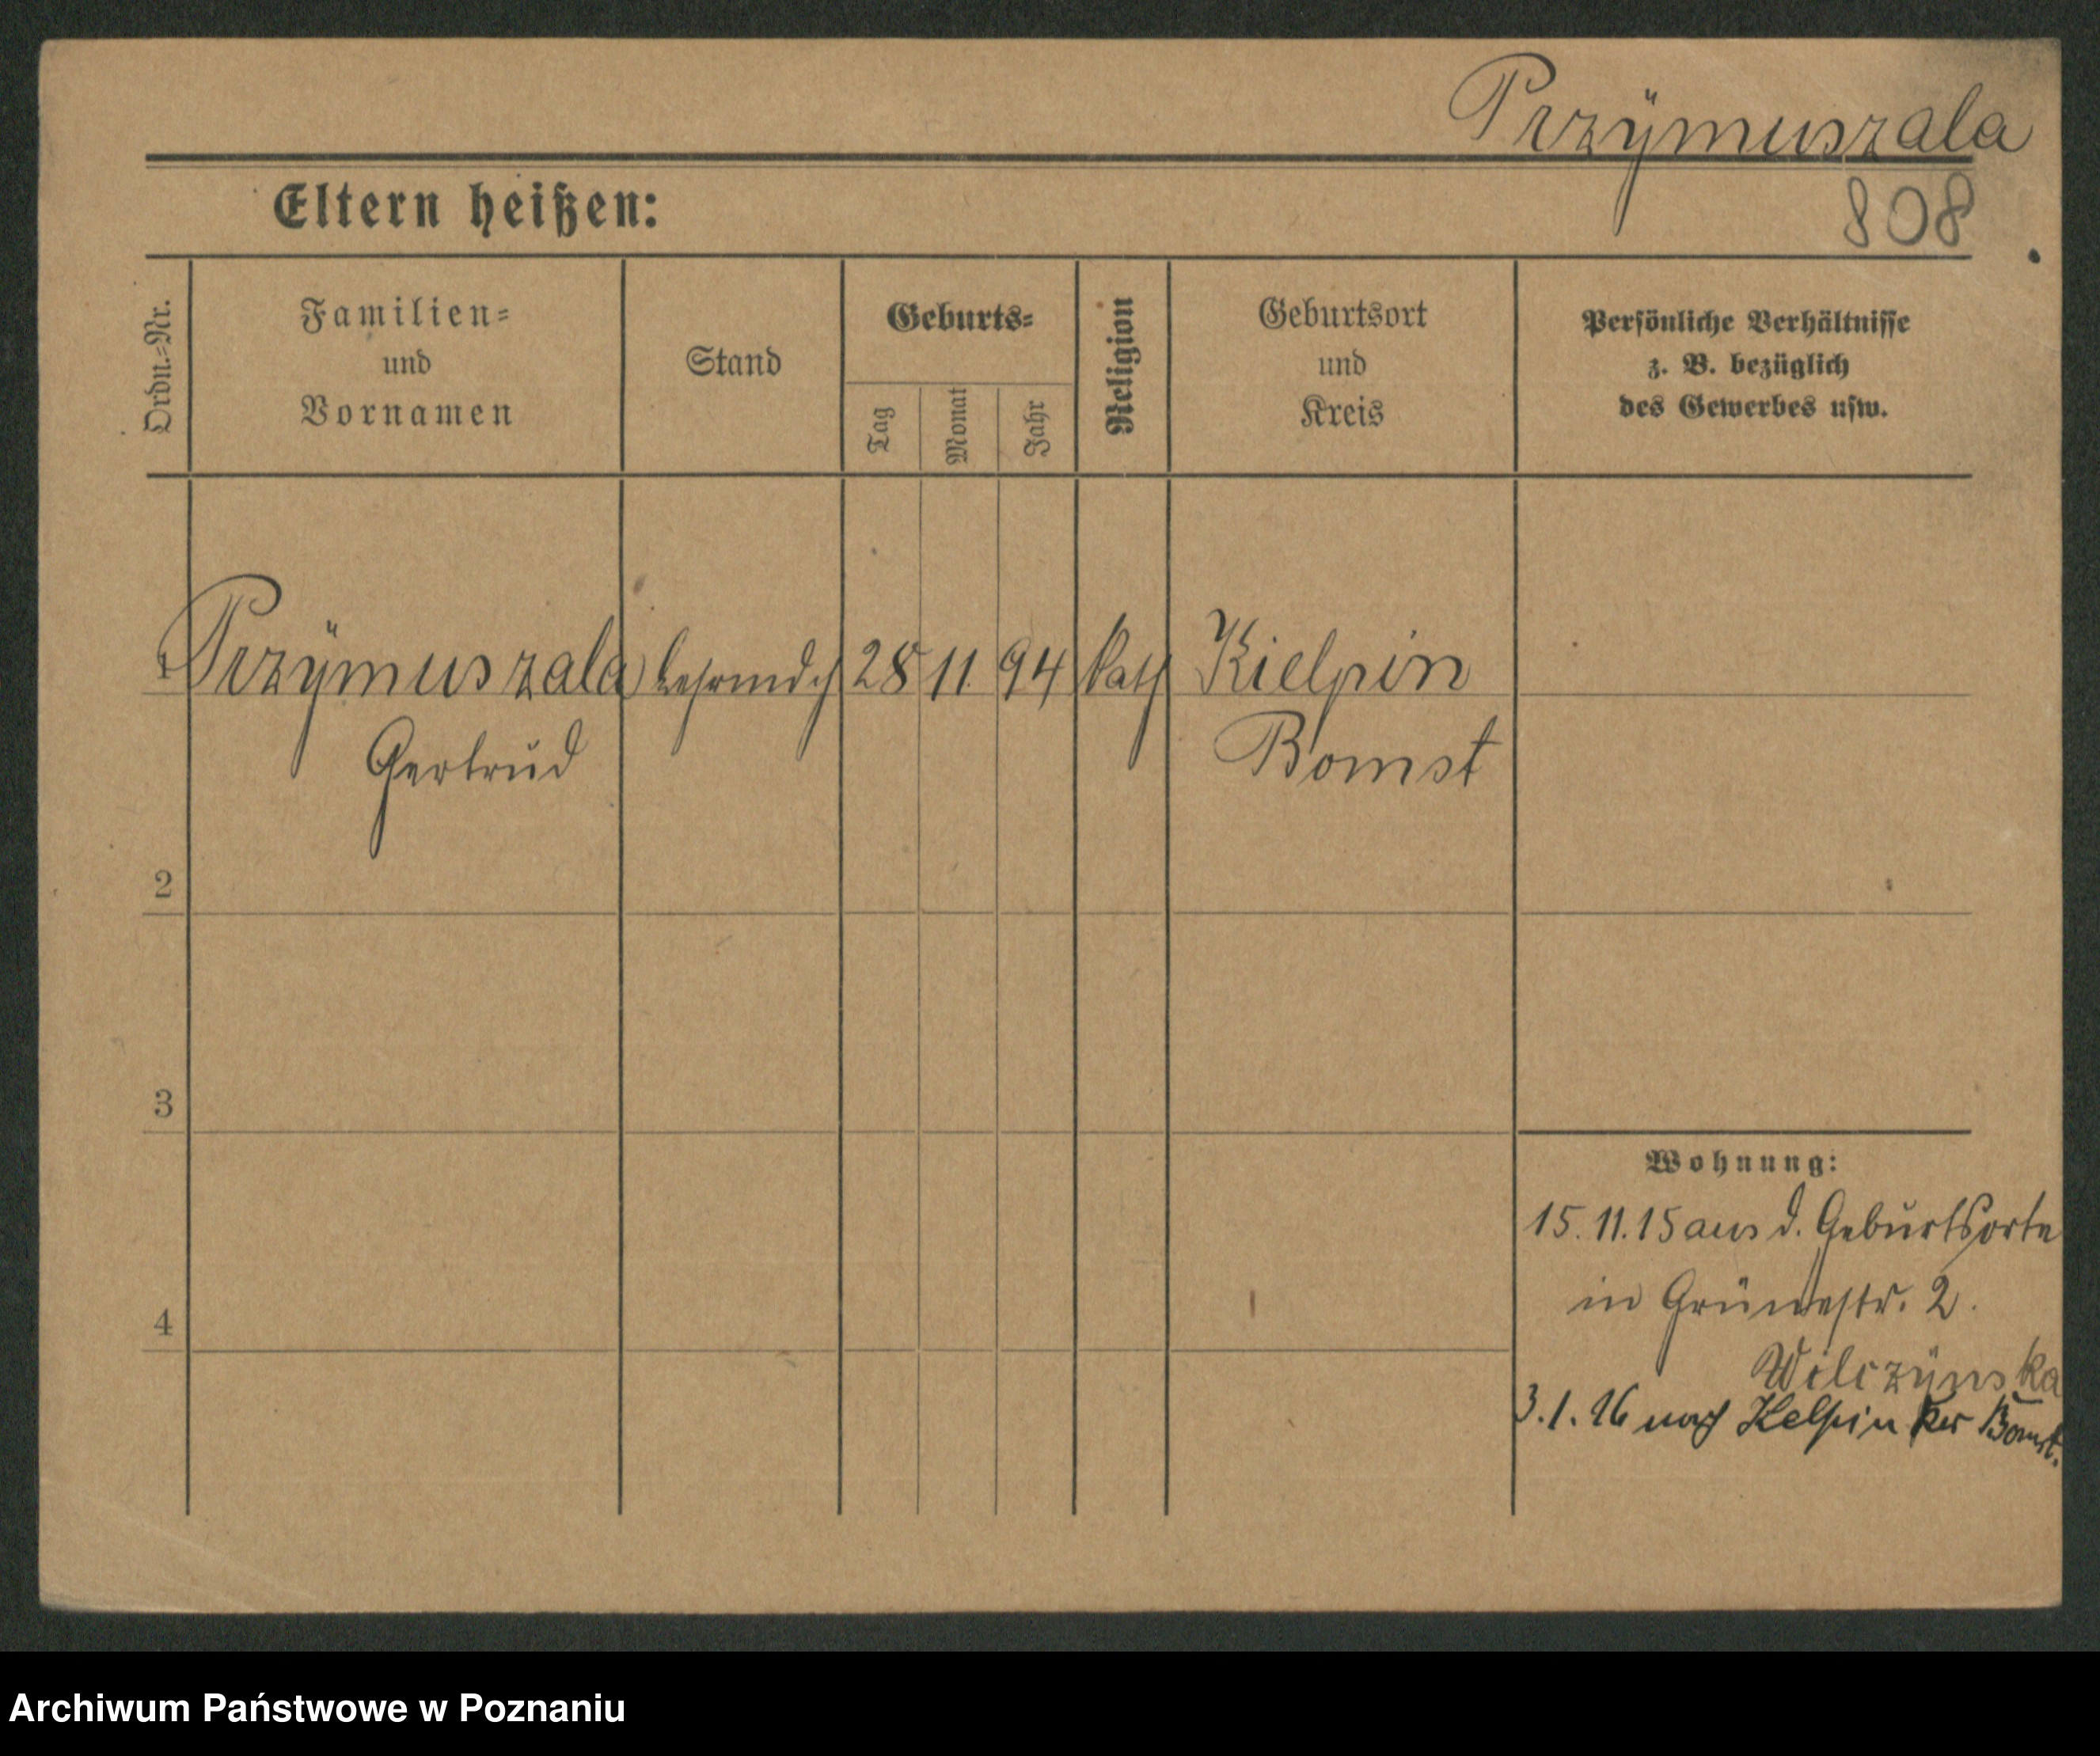 Przÿmuszala
Eltern heißen:
808
Ordn.-Nr.
Familien-
und
Vornamen
Stand
Geburts-
Tag
Monat
Jahr
Religion
Geburtsort
und
Kreis
Persönliche Verhältnisse
z. B. bezüglich
des Gewerbes usw.
1 Przÿmuszala Lehrmdch 28 11. 94 kath Kielpin
Gertrud Bomst
2
3
4
Wohnung:
15.11.15 aus d. Geburtsorte
in Grünestr. 2.
Wilczÿnska
3.1.16 nach Kelpin Krs Bomst.
Archiwum Państwowe w Poznaniu